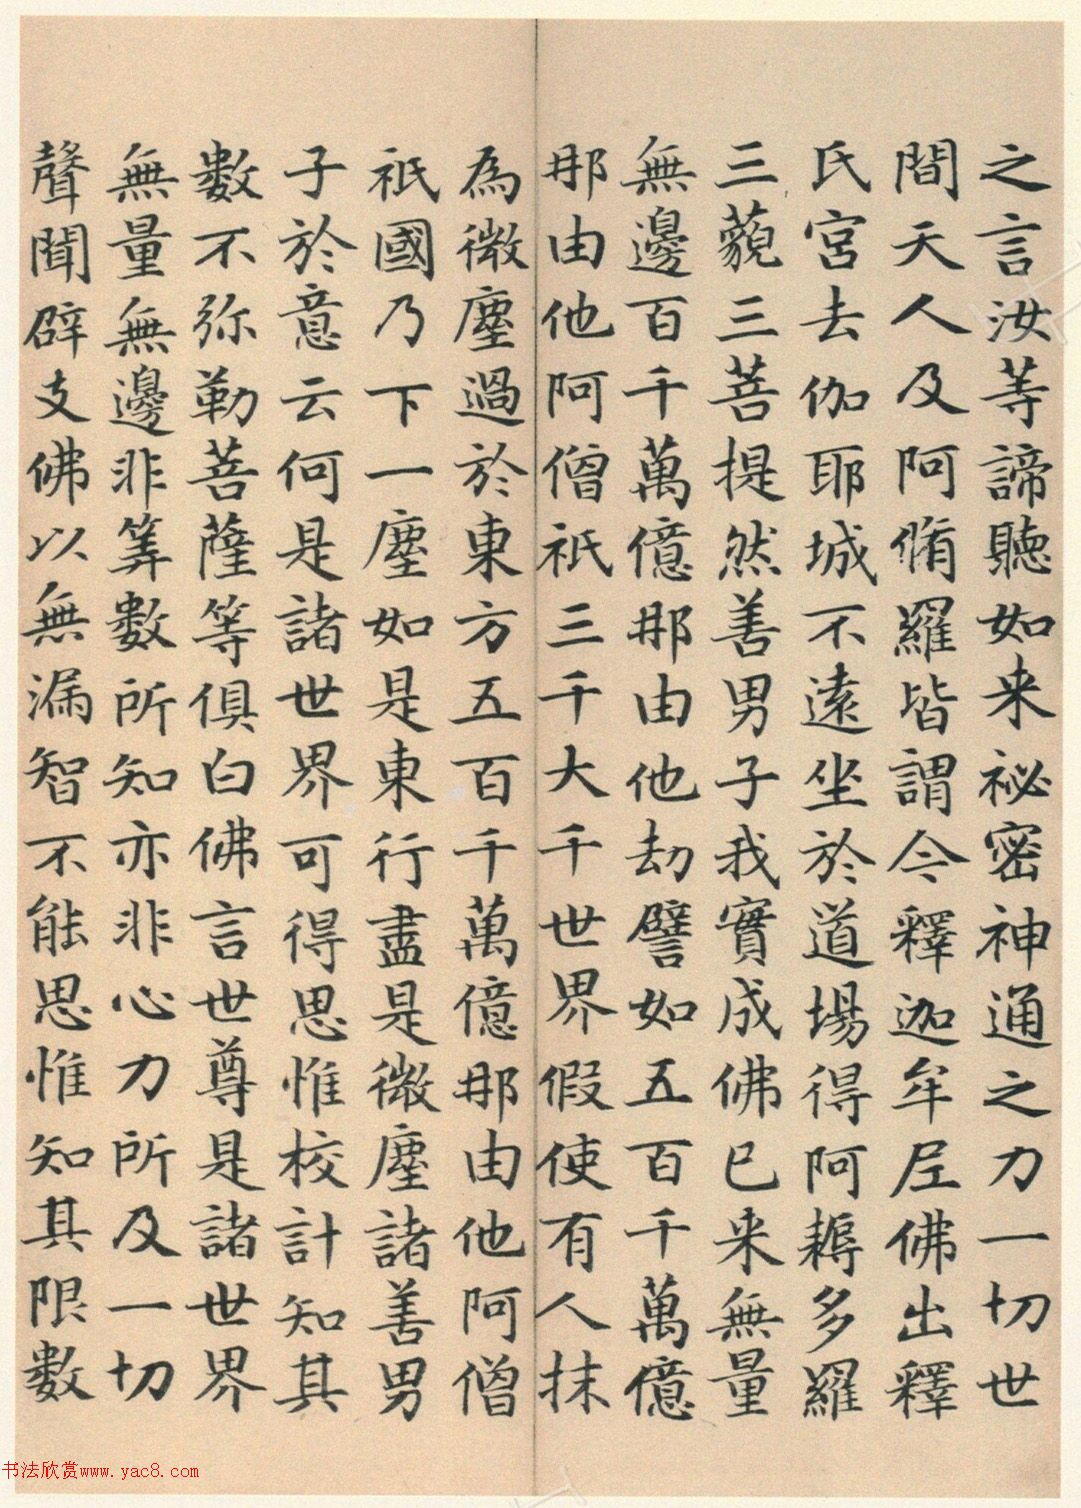 之言汝等諦聽如来祕密神通之力一切世
間天人及阿脩羅皆謂今釋迦牟尼佛出釋
氏宮去伽耶城不遠坐於道場得阿耨多羅
三藐三菩提然善男子我實成佛已来無量
無邊百千萬億那由他劫譬如五百千萬億
那由他阿僧祇三千大千世界假使有人抹
為微塵過於東方五百千萬億那由他阿僧
祇國乃下一塵如是東行盡是微塵諸善男
子於意云何是諸世界可得思惟校計知其
數不弥勒菩薩等俱白佛言世尊是諸世界
無量無邊非筭數所知亦非心力所及一切
聲聞辟支佛以無漏智不能思惟知其限數
书法欣赏www.yac8.com